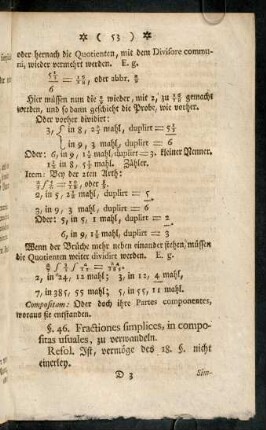 ( 53 )
oder hernach die Quotienten, mit dem Divisore communi, wieder vermehrt werden. E. g.
oder abbr.
Hier müssen nun die wieder, mit 2, zu gemacht
werden, und so dann geschieht die Probe, wie vorher.
Oder vorher dividirt:
3, in 8, 2⅔ mahl, duplirt = 5⅓
in 9, 3 mahl, duplirt = 6
Oder: 6, in 9, 1½ mahl, duplirt = 3. kleiner Nenner.
1⅓ in 8, 5⅓ mahl. Zähler.
Item: Bey der 2ten Arth:
oder
2, in 5, 2½ mahl, duplirt = 5
3, in 9, 3 mahl, duplirt = 6
Oder: 5, in 5, 1 mahl, duplirt = 2
6, in 9, 1½ mahl, duplirt = 3
Wenn der Brüche mehr neben einander stehen, müssen
die Quotienten weiter dividirt werden. E. g.
2, in 24, 12 mahl; 3, in 12, 4 mahl,
7, in 385, 55 mahl; 5, in 55, 11 mahl.
Compositam: Oder doch ihre Partes componentes,
woraus sie entstanden.
§. 46. Fractiones simplices, in compositas usuales, zu verwandeln.
Resol. Ist, vermöge des 18. §. nicht
einerley.
D 3